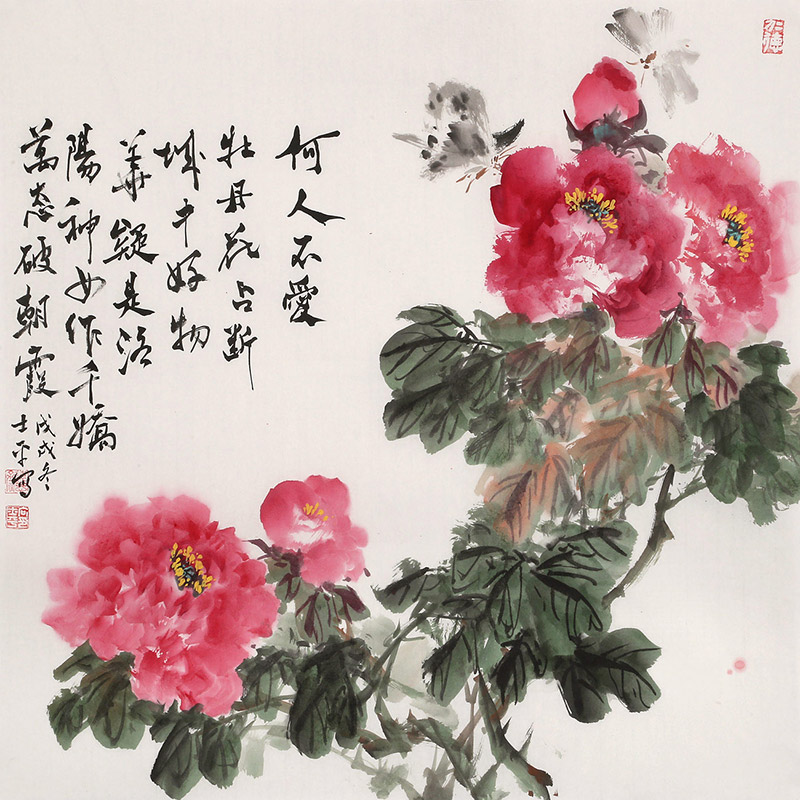 何人不愛
牡丹花占斷
城中好物
華疑是洛
陽神女作千嬌
萬态破朝霞
戊戌冬
士平寫